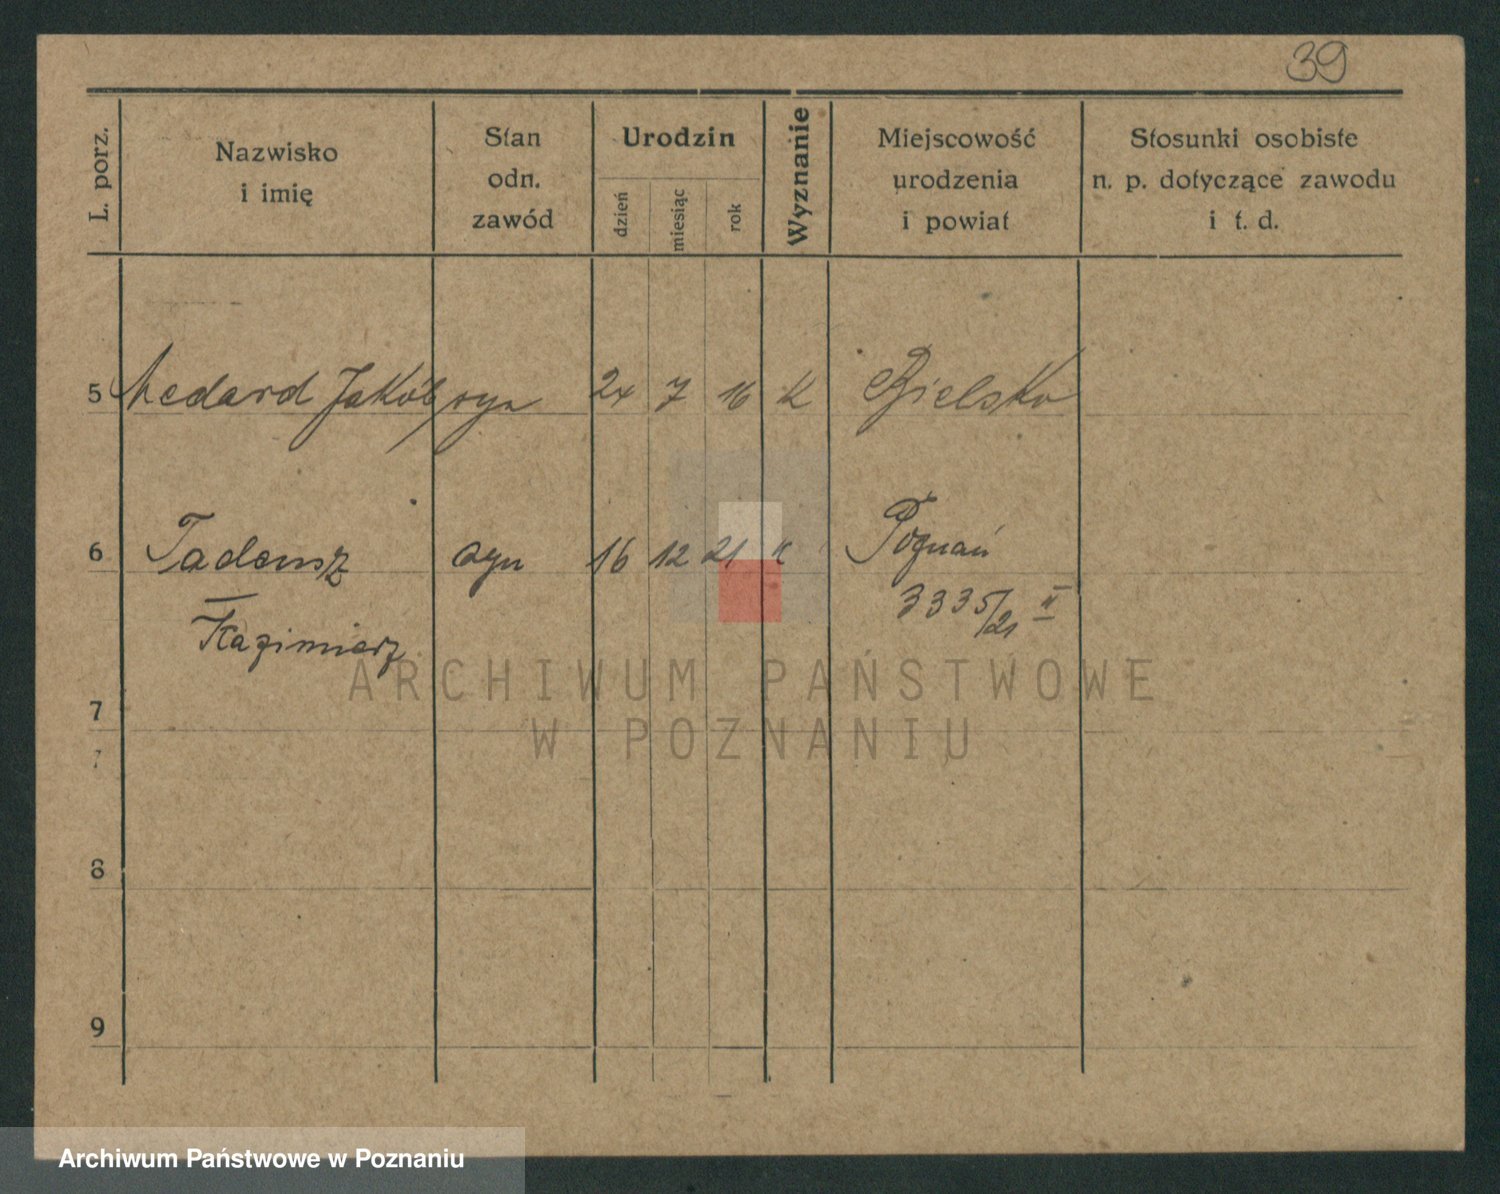 39
L. porz.
Nazwisko
i imię
Stan
odn.
zawód
Urodzin
dzień
miesiąc
rok
Wyznanie
Miejscowość
urodzenia
i powiat
Stosunki osobiste
n. p. dotyczące zawodu
i t. d.
5 Medard Jakób syn 24 7 16 K Bielsko
6 Tadeusz syn 16 12 21 K Poznań
Kazimierz 3335/21 II
ARCHIWUM PAŃSTWOWE
W POZNANIU
7
8
9
Archiwum Państwowe w Poznaniu